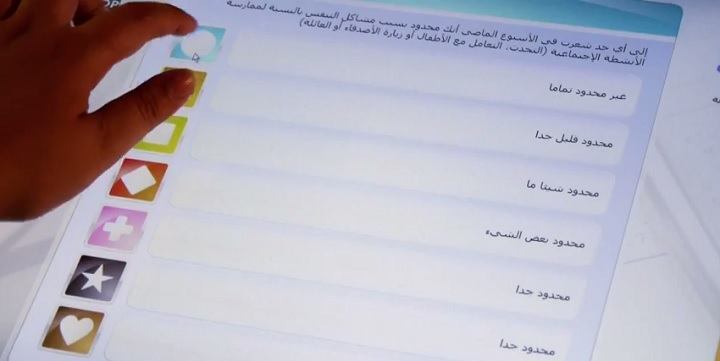 إلى أي حد شعرت في الأسبوع الماضي أنك محدود بسبب مشاكل التنفس بالنسبة لممارسة
الأنشطة الإجتماعية (التحدث، التعامل مع الأطفال أو زيارة الأصدقاء أو العائلة)
غير محدود تماما
محدود قليل جدا
محدود شيئا ما
محدود بعض الشيء
محدود جدا
محدود جدا